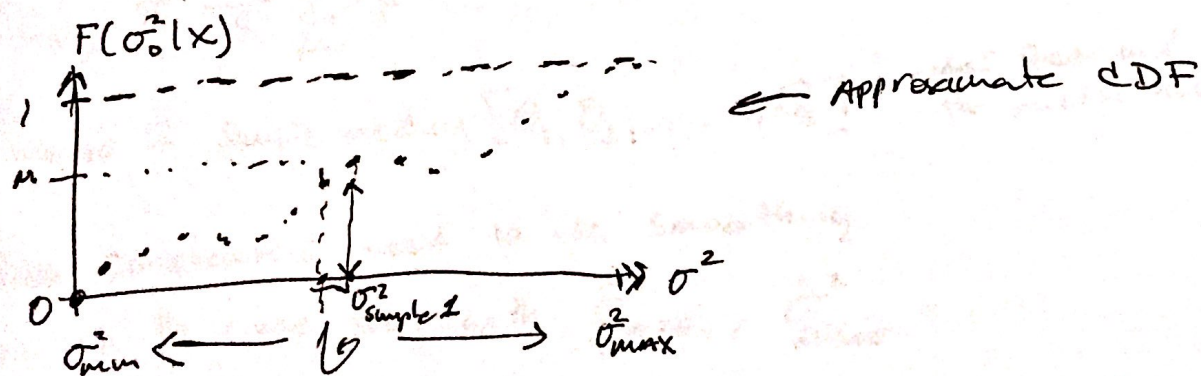 F(σ₀²|X)
1
← Approximate CDF
u
0
σ²
σ²sample 1
σ²min ← → σ²MAX